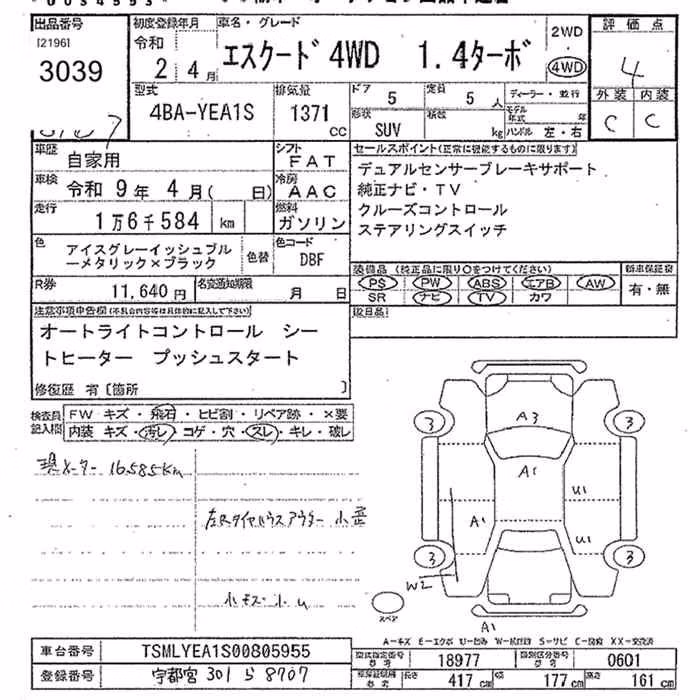 出品番号
[2196]
3039
初度登録年月
令和
2年 4月
車名・グレード
エスクード 4WD 1.4ターボ
2WD
4WD
評価点
4
外装 内装
C C
型式
4BA-YEA1S
排気量
1371
CC
ドア
5
定員
5 人
形状
SUV
積数
kg
ディーラー・並行
モデル年式 年
ハンドル 左・右
車歴
自家用
シフト
FAT
車検
令和 9年 4月( 日)
冷房
AAC
走行
1万6千584 km
燃料
ガソリン
色
アイスグレーイッシュブル
ーメタリック×ブラック
色替
色コード
DBF
R券
11,640 円
名変通知期限
月 日
セールスポイント(正常に機能するものに限ります)
デュアルセンサーブレーキサポート
純正ナビ・TV
クルーズコントロール
ステアリングスイッチ
装備品 (純正品に限り○をつけてください)
PS PW ABS エアB AW
SR ナビ TV カワ
新車保証書
有・無
注意事項申告欄(不具合内容等は具体的に記入して下さい)
オートライトコントロール シー
トヒーター プッシュスタート
修復歴 有 [箇所 ]
検査員
記入欄
FW キズ・飛石・ヒビ割・リペア跡・×要
内装 キズ・汚レ・コゲ・穴・スレ・キレ・破レ
現メーター 16585Km
左Rタイヤハウスアウター 小歪
3 3
A3
A1
U1
A1
U1
3 3
W2
A1
スペア
A-キズ E-エクボ U-凹み W-波状凹 S-サビ C-腐蝕 XX-交換済
車台番号
TSMLYEA1S00805955
登録番号
宇都宮 301 ら 8707
型式指定番号
参考
18977
類別区分番号
参考
0601
長さ 417 cm 幅 177 cm 高さ 161 cm